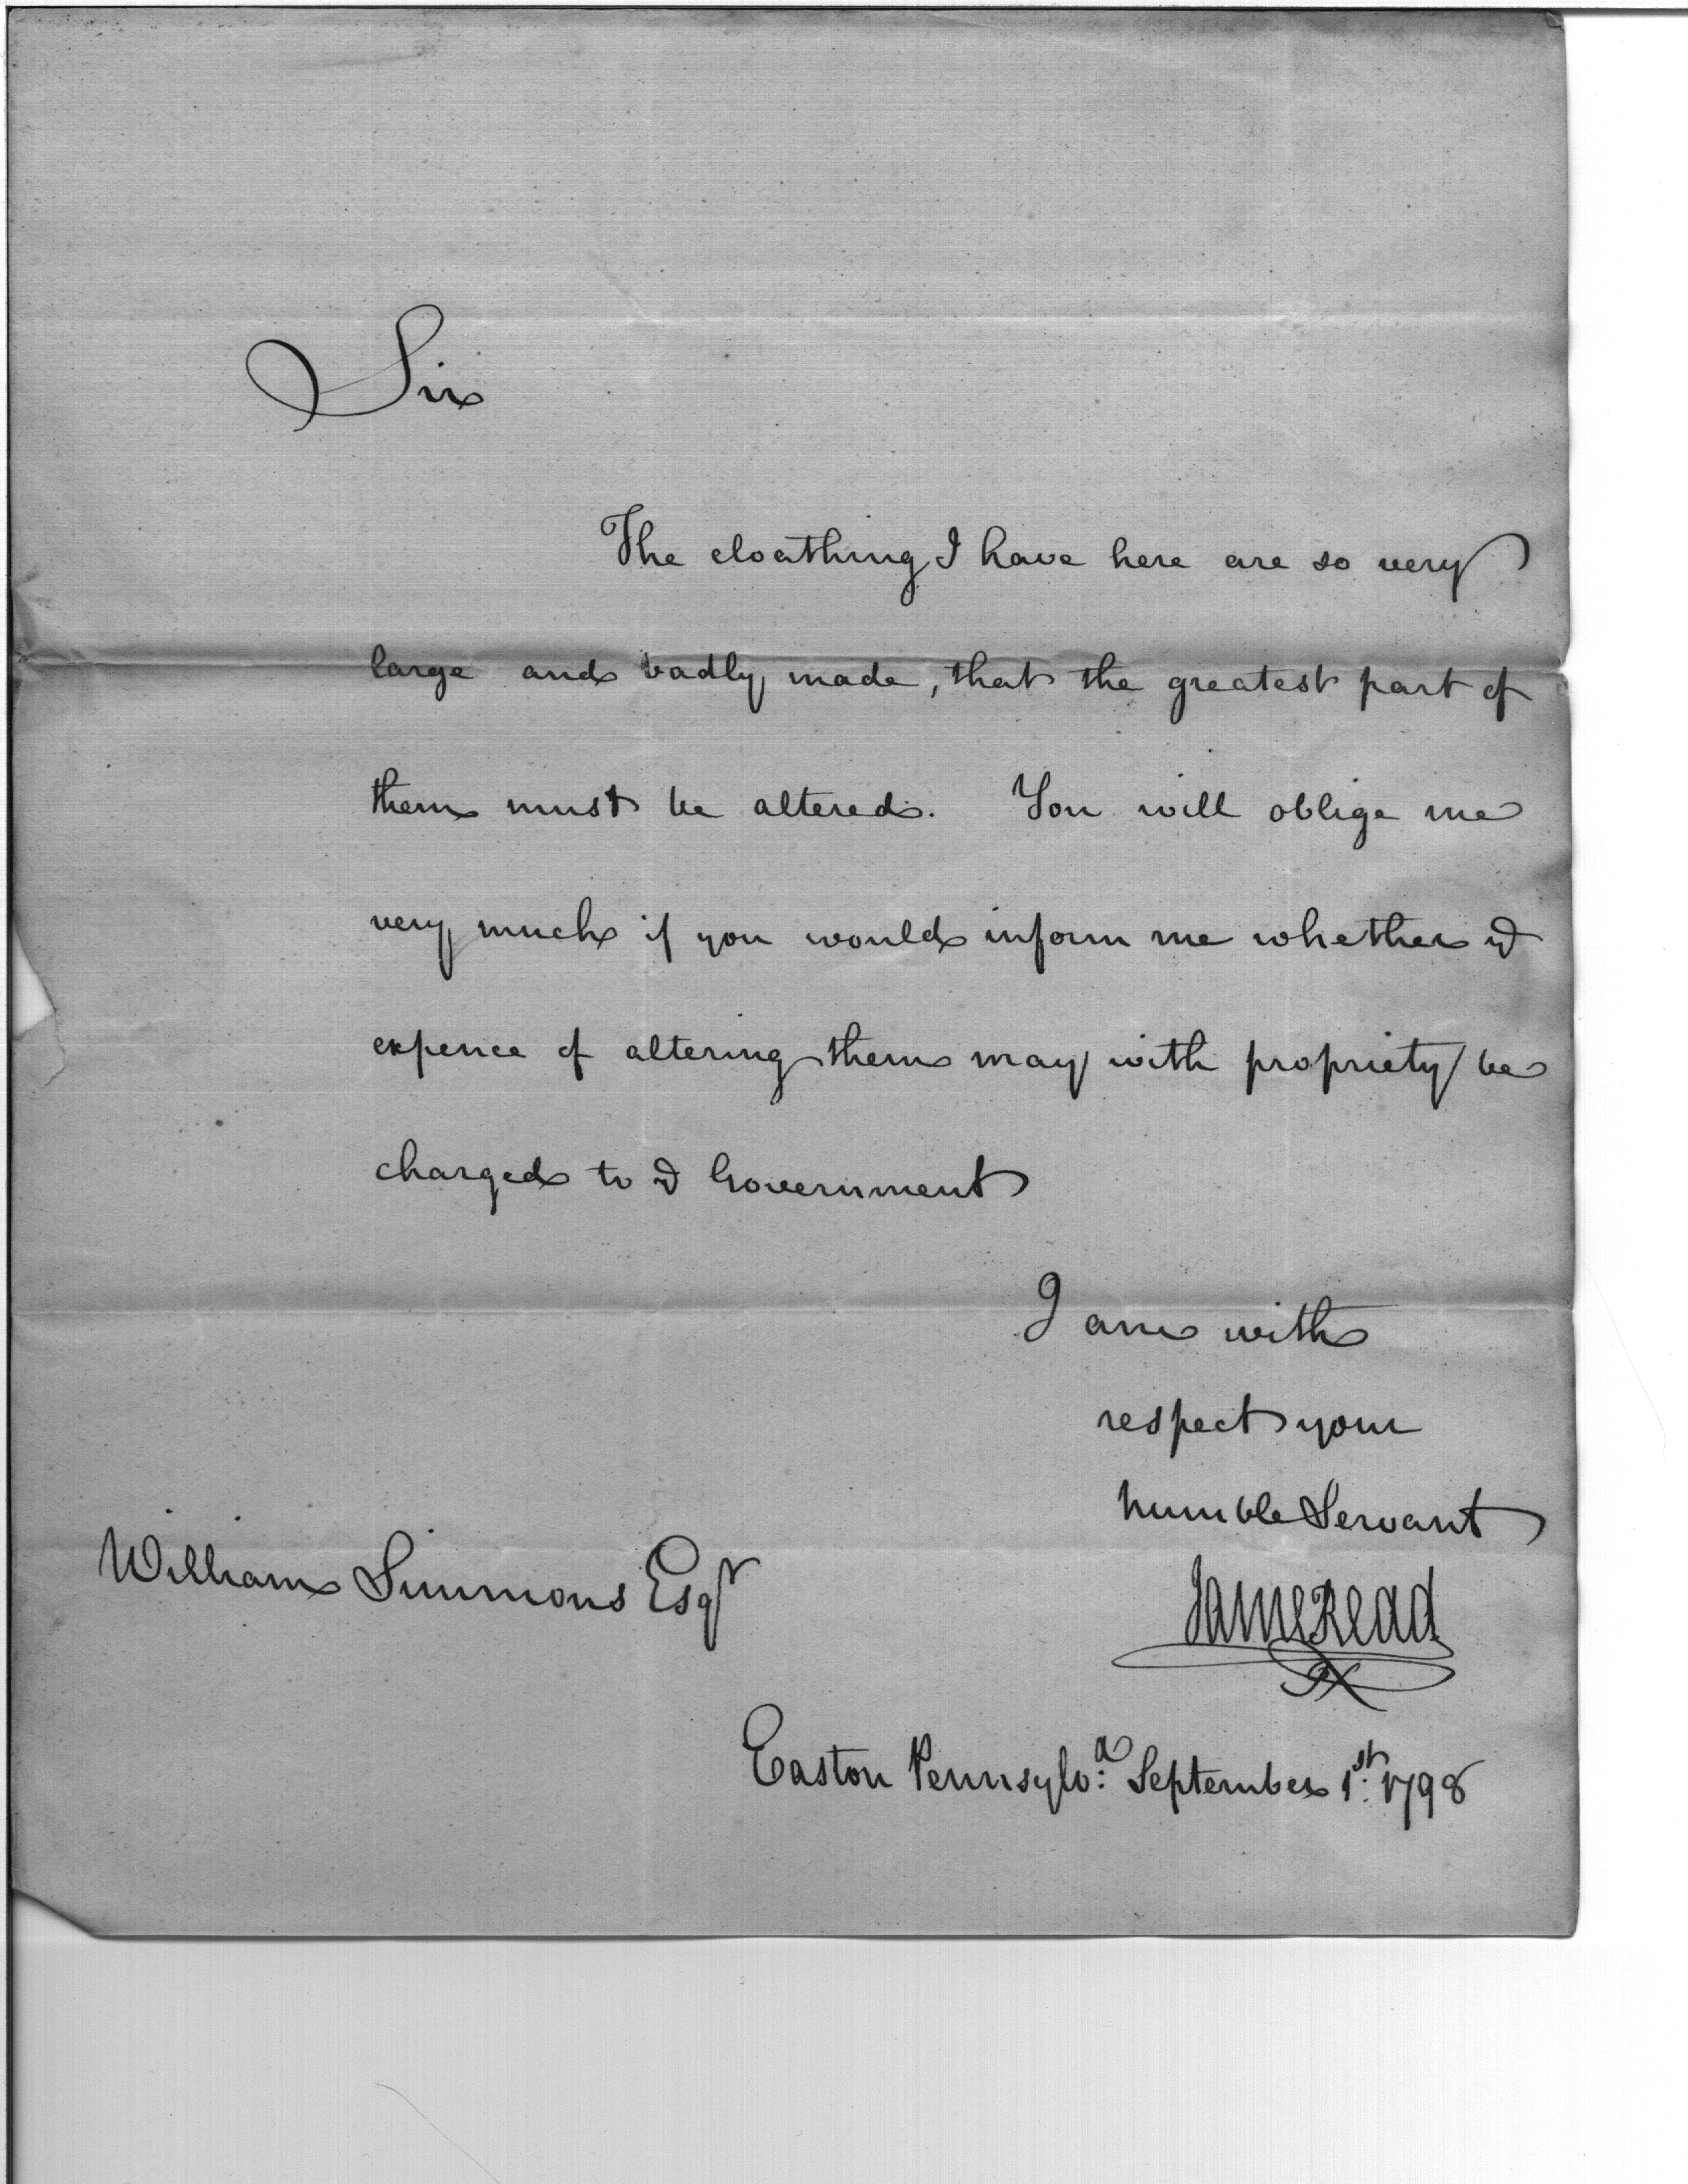 Sir
The cloathing I have here are so very
large and badly made, that the greatest part of
them must be altered. You will oblige me
very much if you would inform me whether ye
expence of altering them may with propriety be
charged to ye Government
I am with
respect your
humble Servant
William Simmons Esqr
James Read
Easton Pennsylva: September 1st: 1798